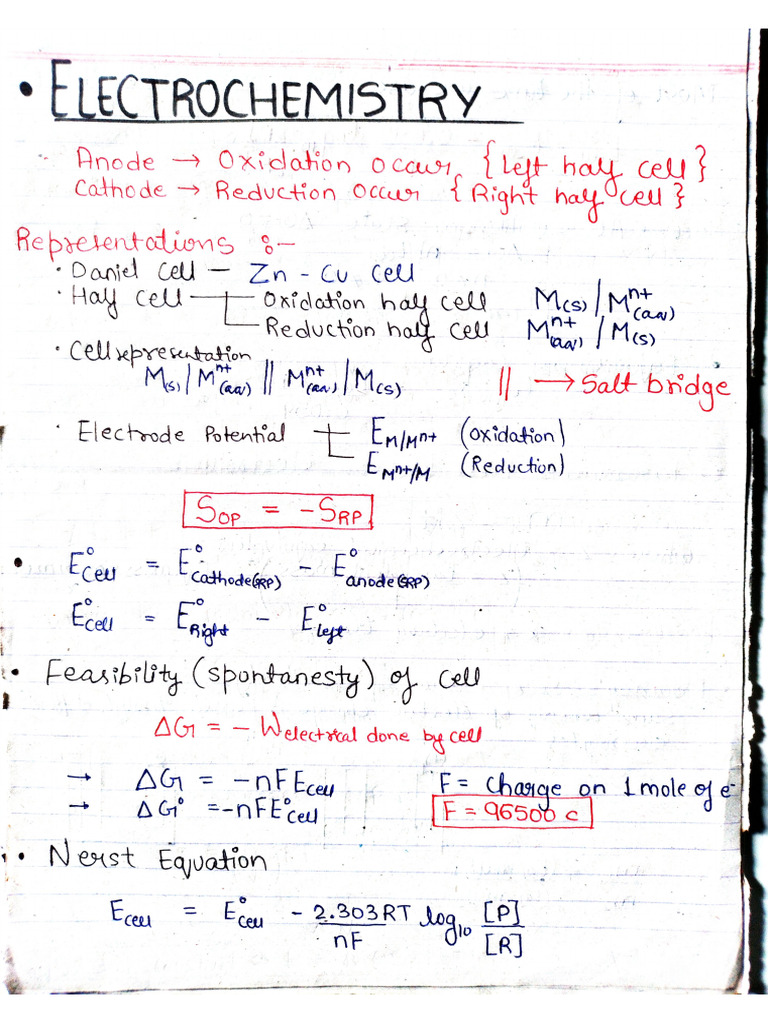 • ELECTROCHEMISTRY
Anode → Oxidation occur {Left half cell}
Cathode → Reduction occur {Right half cell}
Representations :-
• Daniel cell — Zn - Cu cell
• Half cell — Oxidation half cell M(s) / Mⁿ⁺(aq)
Reduction half cell Mⁿ⁺(aq) / M(s)
• Cell representation
M(s) / Mⁿ⁺(aq) || Mⁿ⁺(aq) / M(s) || → Salt bridge
• Electrode Potential — E M/Mⁿ⁺ (oxidation)
E Mⁿ⁺/M (Reduction)
S_OP = -S_RP
• E°cell = E°cathode(SRP) - E°anode(SRP)
E°cell = E°Right - E°left
• Feasibility (spontanesty) of cell
ΔG = - W electrical done by cell
→ ΔG = -nFEcell F = Charge on 1 mole of e⁻
→ ΔG° = -nFE°cell F = 96500 c
• Nerst Equation
Ecell = E°cell - 2.303RT/nF log₁₀ [P]/[R]